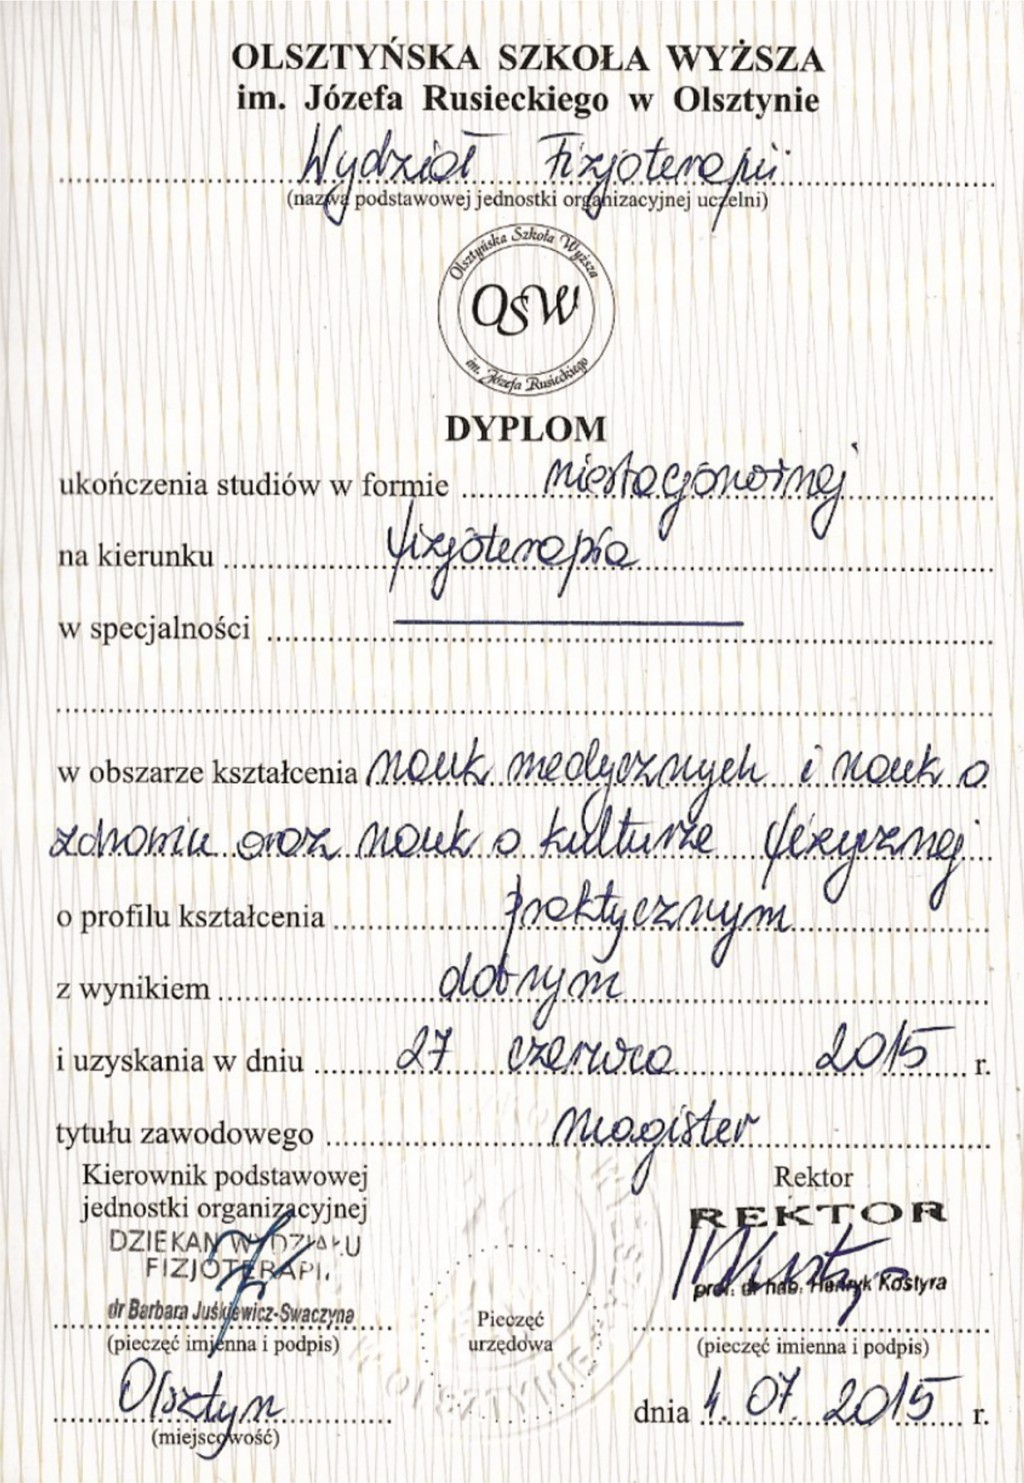 OLSZTYŃSKA SZKOŁA WYŻSZA
im. Józefa Rusieckiego w Olsztynie
Wydział Fizjoterapii
(nazwa podstawowej jednostki organizacyjnej uczelni)
Olsztyńska Szkoła Wyższa
OSW
im. Józefa Rusieckiego
DYPLOM
ukończenia studiów w formie niestacjonarnej
na kierunku fizjoterapia
w specjalności
w obszarze kształcenia nauk medycznych i nauk o
zdrowiu oraz nauk o kulturze fizycznej
o profilu kształcenia praktycznym
z wynikiem dobrym
i uzyskania w dniu 27 czerwca 2015 r.
tytułu zawodowego magister
Kierownik podstawowej
jednostki organizacyjnej
DZIEKAN WYDZIAŁU
FIZJOTERAPII
dr Barbara Juśkiewicz-Swaczyna
(pieczęć imienna i podpis)
Olsztyn
(miejscowość)
Pieczęć
urzędowa
W OLSZTYNIE
Rektor
REKTOR
prof. dr hab. Henryk Kostyra
(pieczęć imienna i podpis)
dnia 4.07.2015 r.